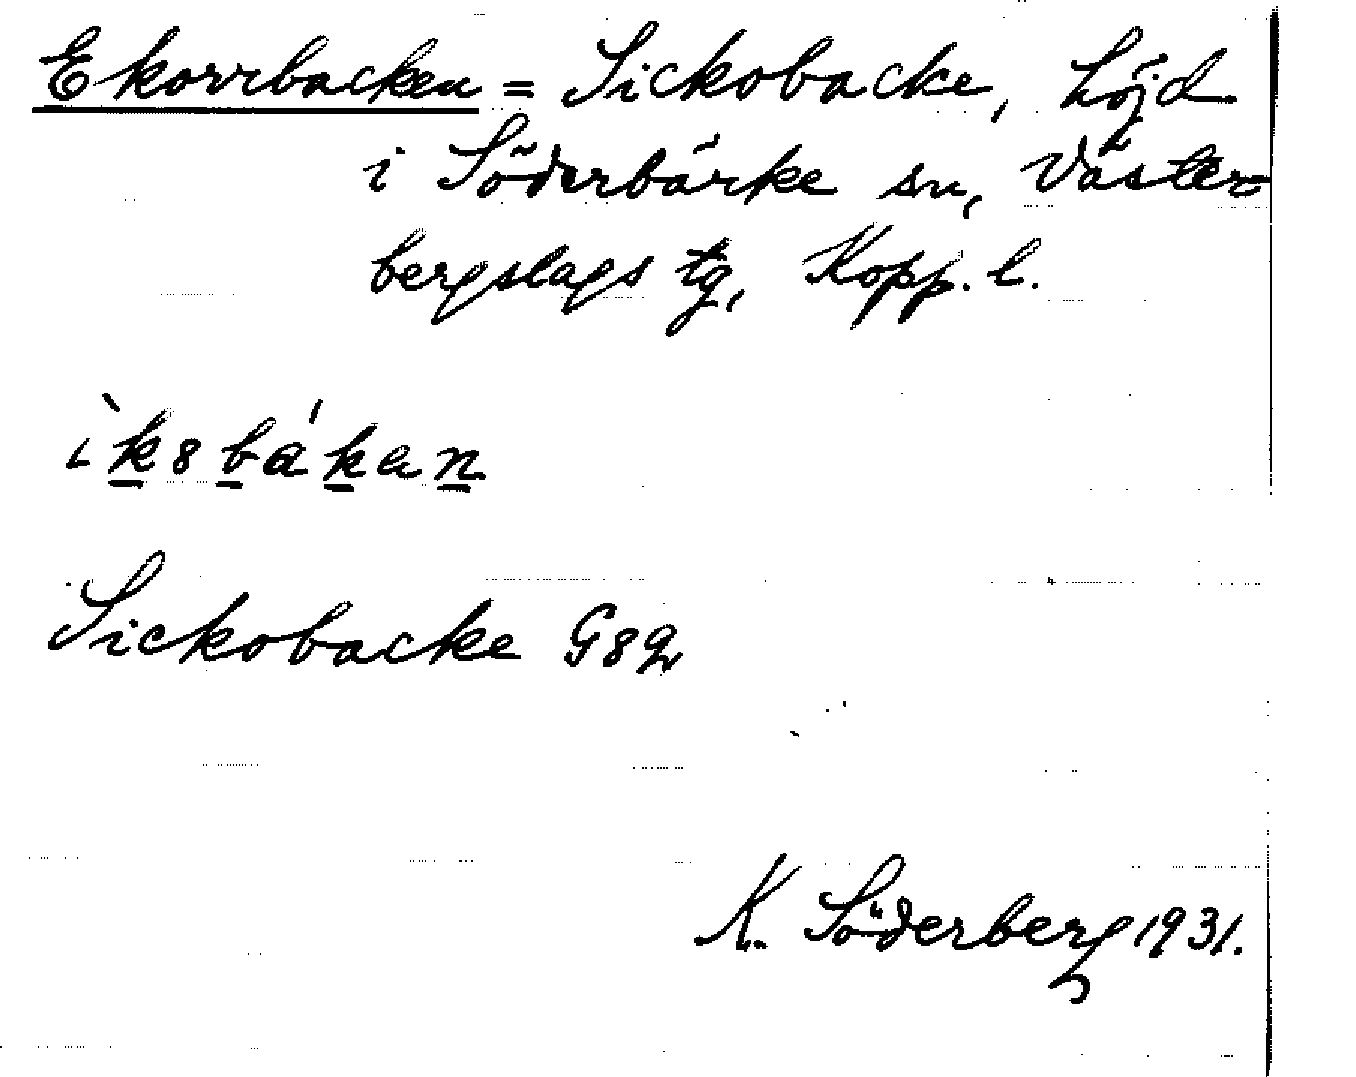 Ekorrbacken = Sickobacke, höjd
i Söderbärke sn, Väster=
bergslags tg, Kopp. l.
ìk8bákan
Sickobacke G82
K. Söderberg 1931.